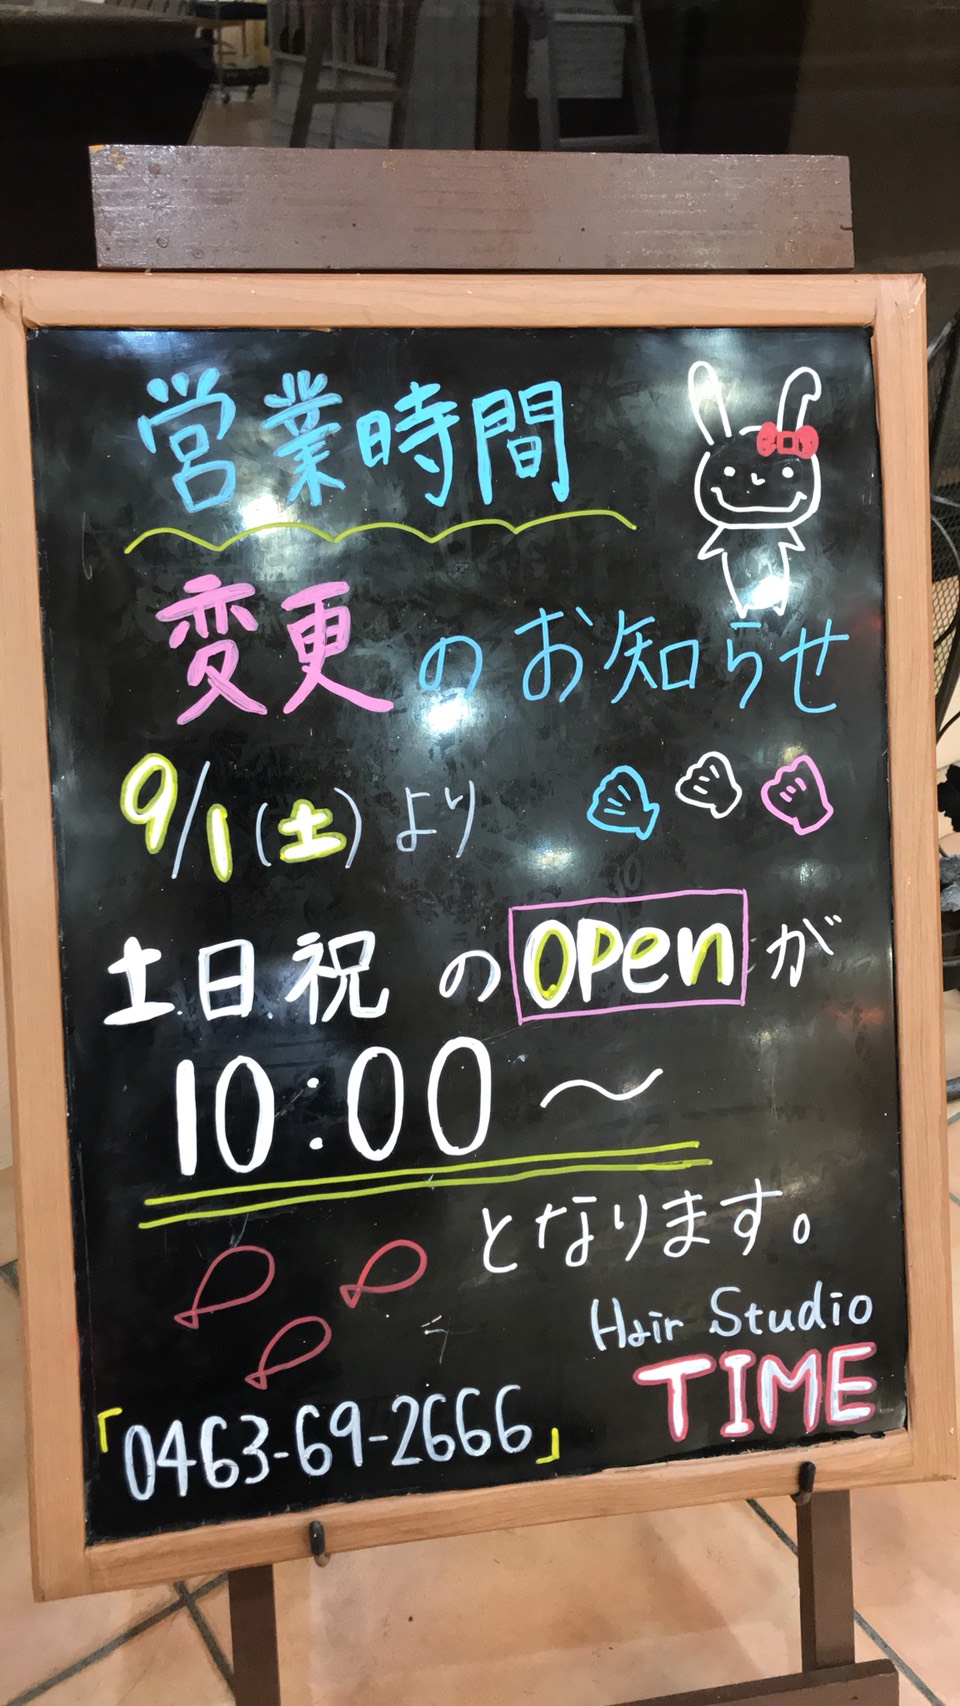 営業時間
変更のお知らせ
9/1(土)より
土日祝のopenが
10:00～
となります。
Hair Studio
TIME
「0463-69-2666」